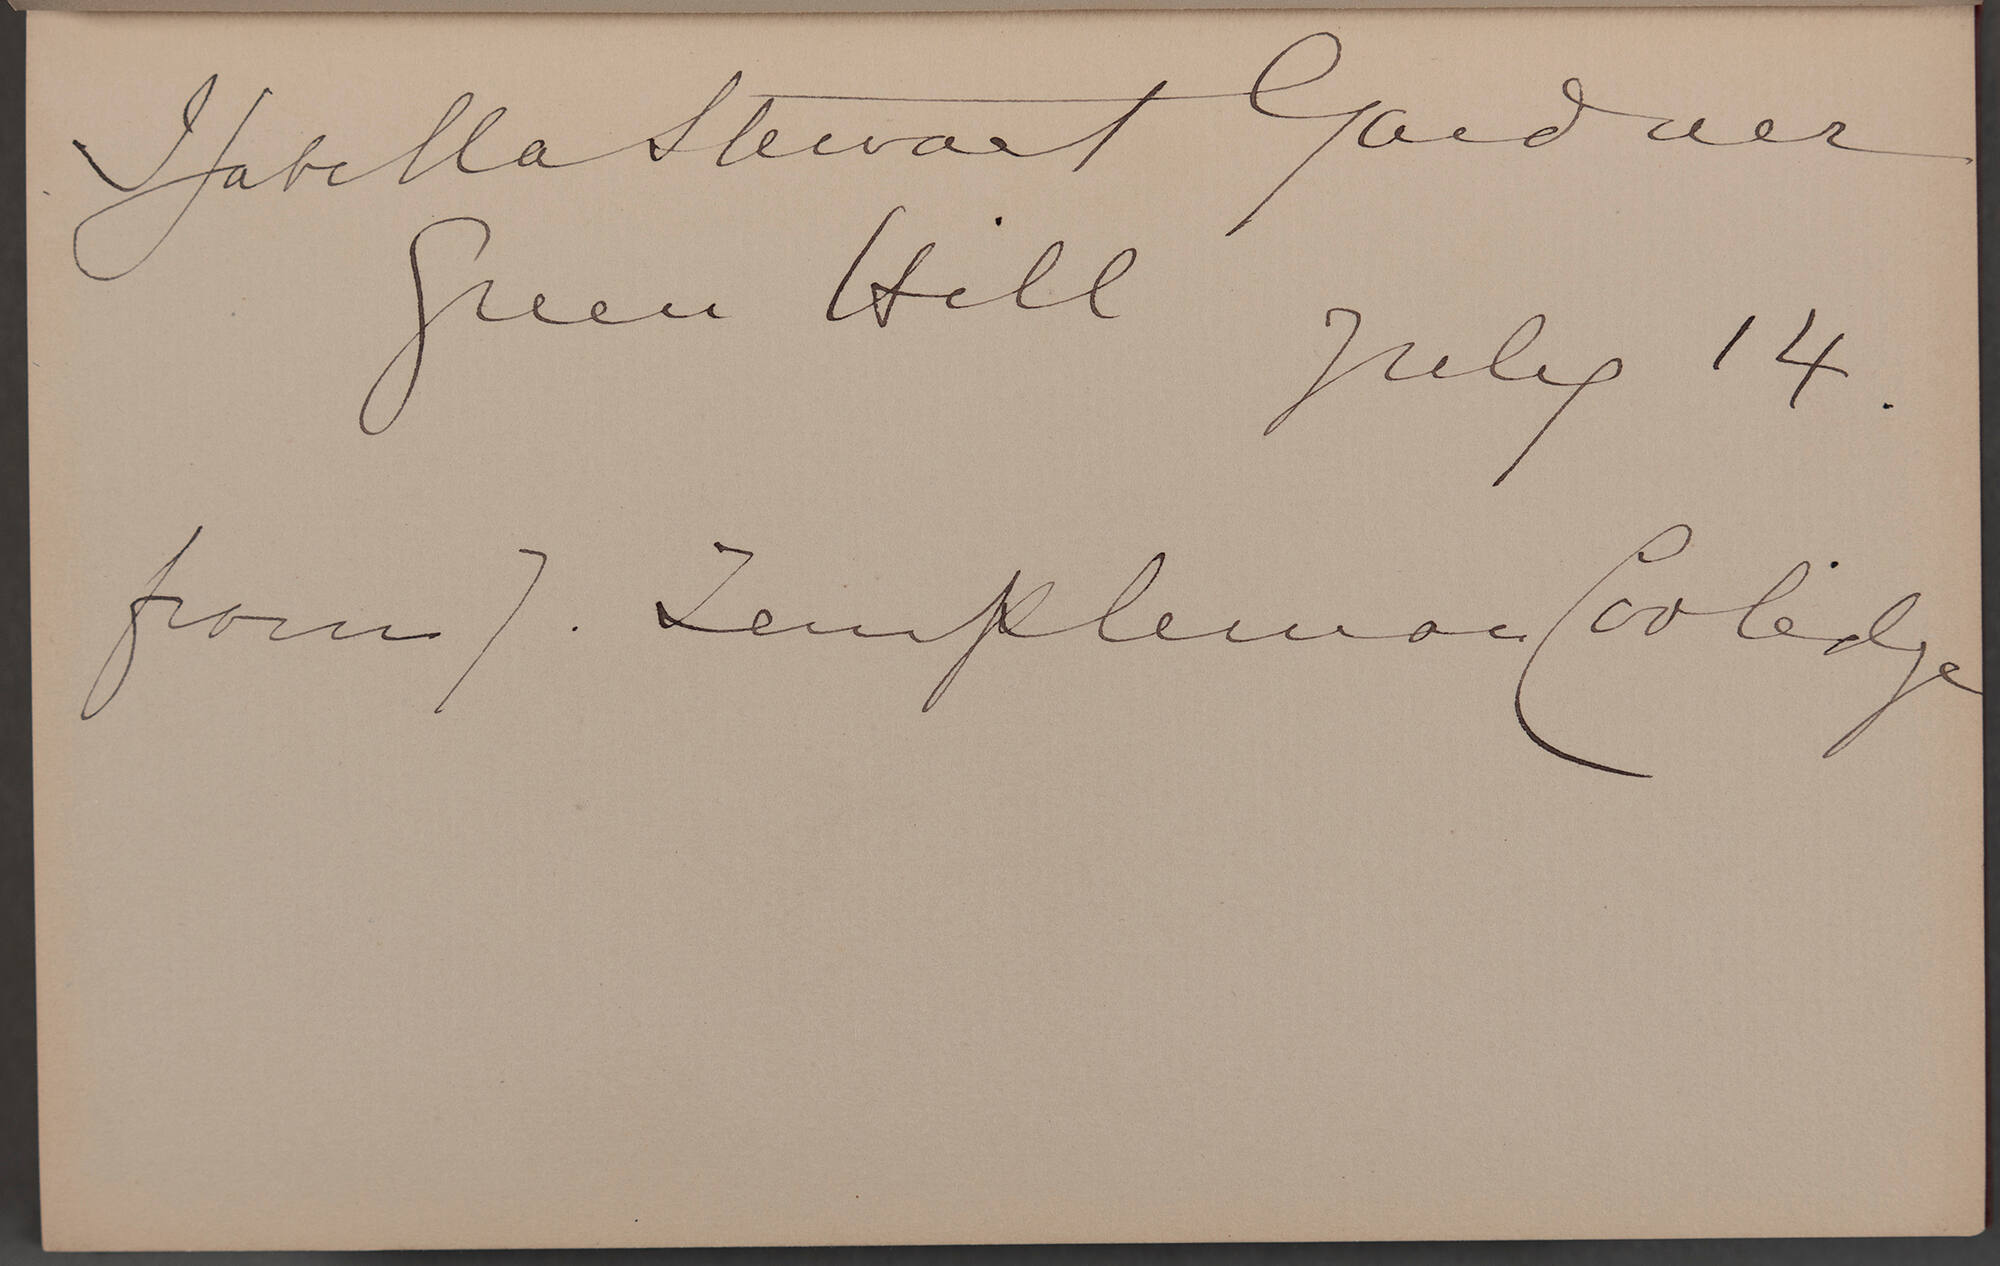 Isabella Stewart Gardner
Green Hill
July 14.
from J. Templeman Coolidge